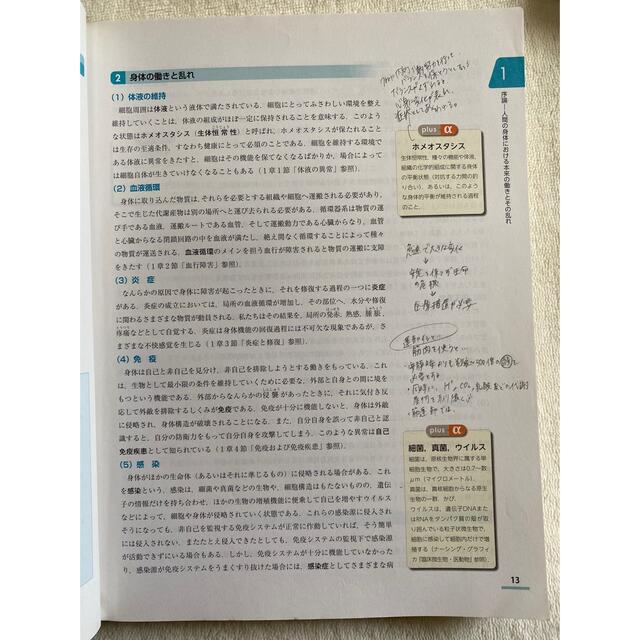 2 身体の働きと乱れ
(1) 体液の維持
細胞周囲は体液という液体で満たされている．細胞にとってふさわしい環境を整え
維持していくことは，体液の組成がほぼ一定に保持されることを意味する．このよう
な状態はホメオスタシス（生体恒常性）と呼ばれ，ホメオスタシスが保たれること
は生存の至適条件，すなわち健康にとって必須のことである．細胞を維持する環境で
ある体液に異常をきたすと，細胞はその機能を保てなくなるばかりか，場合によって
は細胞自体が生きていけなくなることもある（1章1節「体液の異常」参照）．
(2) 血液循環
身体に取り込んだ物質は，それらを必要とする組織や細胞へ運搬される必要があり，
そこで生じた代謝産物は別の場所へと運び去られる必要がある．循環器系は物質の運
び手である血液，運搬ルートである血管，そして運搬動力である心臓からなり，血管
と心臓からなる閉鎖回路の中を血液が満たし，絶え間なく循環することによって種々
の物質が運送される．血液循環のメインを担う血行が障害されると物質の運搬に支障
をきたす（1章2節「血行障害」参照）．
(3) 炎症
なんらかの原因で身体に障害が起こったときに，それを修復する過程の一つに炎症
がある．炎症の成立においては，局所の血液循環が増加し，その部位へ，水分や修復
に関わるさまざまな物質が動員される．私たちはその結果を，局所の発赤，熱感，腫脹，
疼痛などとして自覚する．炎症は身体機能の回復過程には不可欠な現象であるが，さ
まざまな不快感覚を生じる（1章3節「炎症と修復」参照）．
(4) 免疫
身体は自己と非自己を見分け，非自己を排除しようとする働きをもっている．これ
は，生物として最小限の条件を維持していくために必要な，外部と自身との間に境を
もつという機能である．外部からなんらかの侵襲があったときに，それに気付き反
応して外敵を排除するしくみが免疫である．免疫が十分に機能しないと，身体は外敵
に侵され，身体構造が破壊されることになる．また，自分自身を誤って非自己と認
識すると，自分の防衛力をもって自分自身を攻撃してしまう．このような異常は自己
免疫疾患として知られている（1章4節「免疫および免疫疾患」参照）．
(5) 感染
身体がほかの生命体（あるいはそれに準じるもの）に侵略される場合がある．これ
を感染という．感染は，細菌や真菌などの生物や，細胞構造はもたないものの，遺伝
子の情報だけを持ち合わせ，ほかの生物の増殖機能に便乗して自己を増やすウイルス
などによって，細胞や身体が侵略されていく状態である．これらの感染源に侵入され
そうになっても，非自己を監視する免疫システムが正常に作動していれば，そう簡単
には侵入されない．またたとえ侵入できたとしても，免疫システムの監視下で感染源
が活動できずにいる場合もある．しかし，免疫システムが十分に機能していなかった
り，感染源が免疫システムをうまくすり抜けた場合には，感染症としてさまざまな病
plus α
ホメオスタシス
生体恒常性．種々の機能や体液，
組織の化学的組成に関する身体
の平衡状態（対抗する力間の釣
り合い）．あるいは，このよう
な身体的平衡が維持される過程
のこと．
plus α
細菌，真菌，ウイルス
細菌は，原核生物界に属する単
細胞生物で，大きさは0.7～数
μm（マイクロメートル）．
真菌は，真核細胞からなる原生
生物の一群．かび．
ウイルスは，遺伝子DNAまた
はRNAをタンパク質の殻が取
り囲んでいる粒子状微生物で，
細胞に感染して細胞内だけで増
殖する（ナーシング・グラフィ
カ『臨床微生物・医動物』参照）．
1
序論―人間の身体における本来の働きとその乱れ
13